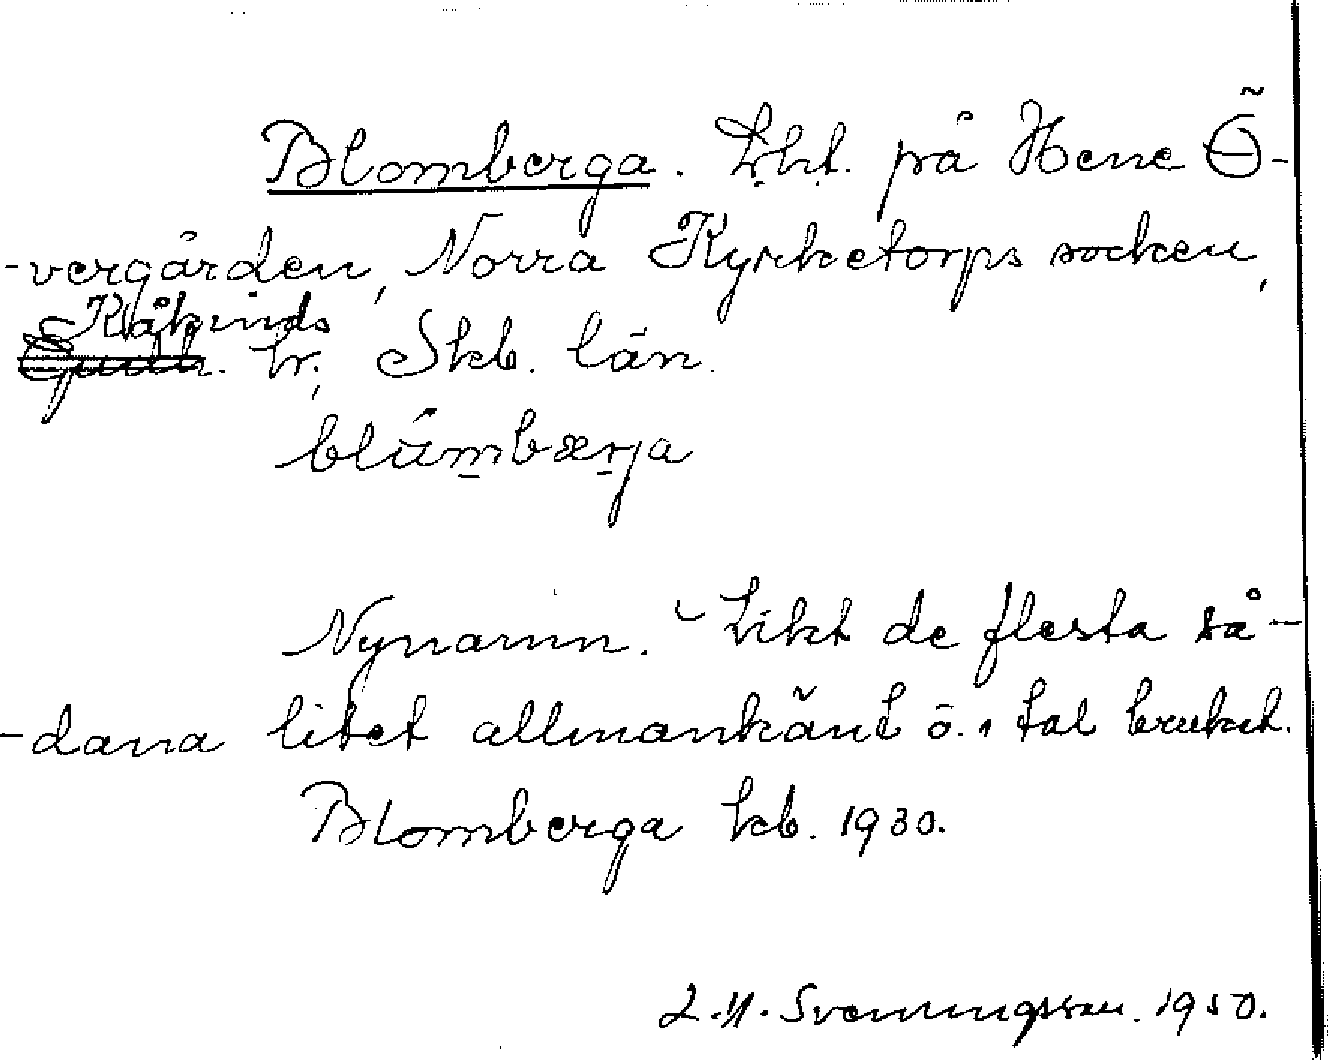 Blomberga. Lht. på Hene Ö-
-vergården, Norra Kyrketorps socken,
Kåkinds
hr, Skb. län.
blu̇́mbærja
Nynamn. Likt de flesta så-
-dana litet allmänkänt o. i tal brukat.
Blomberga kb. 1930.
Svenningsson. 1950.